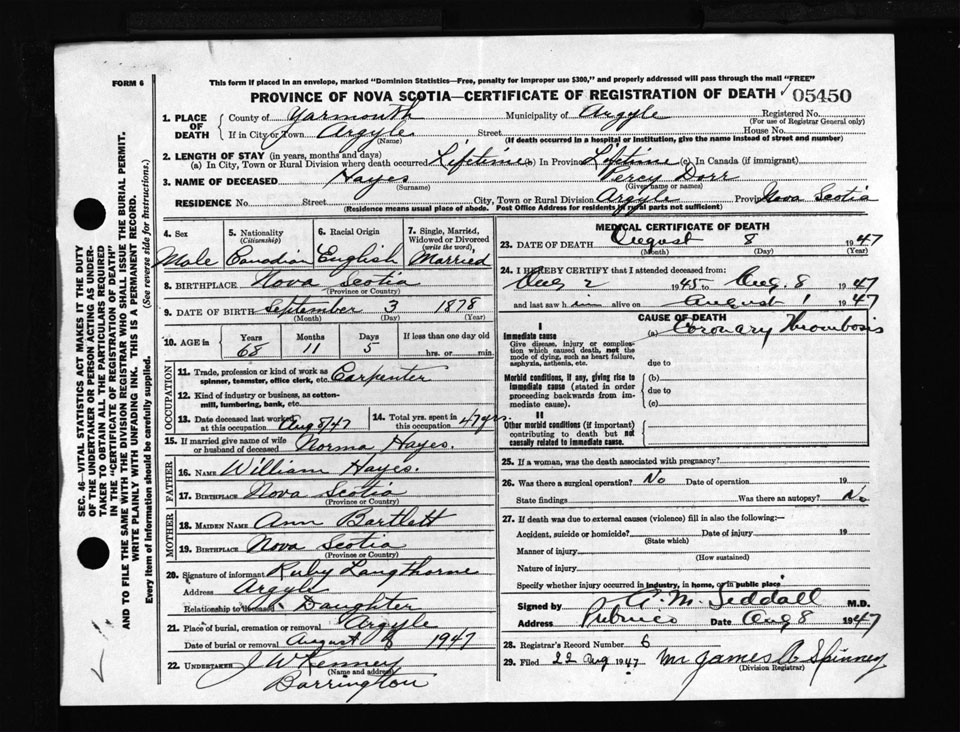 FORM 6
This form if placed in an envelope, marked "Dominion Statistics—Free, penalty for improper use $300," and properly addressed will pass through the mail "FREE"
PROVINCE OF NOVA SCOTIA—CERTIFICATE OF REGISTRATION OF DEATH 05450
1. PLACE OF DEATH County of Yarmouth Municipality of Argyle Registered No.
(For use of Registrar General only)
If in City or Town Argyle Street House No.
(Name) (If death occurred in a hospital or institution, give the name instead of street and number)
2. LENGTH OF STAY (in years, months and days)
(a) In City, Town or Rural Division where death occurred Lifetime (b) In Province Lifetime (c) In Canada (if immigrant)
3. NAME OF DECEASED Hayes Percy Dorr
(Surname) (Given name or names)
RESIDENCE No. Street City, Town or Rural Division Argyle Province Nova Scotia
(Residence means usual place of abode. Post Office Address for residents in rural parts not sufficient)
4. Sex 5. Nationality (Citizenship) 6. Racial Origin 7. Single, Married, Widowed or Divorced (write the word)
Male Canadian English Married
8. BIRTHPLACE Nova Scotia
(Province or Country)
9. DATE OF BIRTH September 3 1878
(Month) (Day) (Year)
10. AGE in Years Months Days If less than one day old
68 11 5 hrs. or min.
OCCUPATION
11. Trade, profession or kind of work as spinner, teamster, office clerk, etc. Carpenter
12. Kind of industry or business, as cotton-mill, lumbering, bank, etc.
13. Date deceased last worked at this occupation Aug 8/47 14. Total yrs. spent in this occupation 47 yrs.
15. If married give name of wife or husband of deceased Norma Hayes.
FATHER
16. NAME William Hayes.
17. BIRTHPLACE Nova Scotia
(Province or Country)
MOTHER
18. MAIDEN NAME Ann Bartlett
19. BIRTHPLACE Nova Scotia
(Province or Country)
20. Signature of informant Ruby Langthorne
Address Argyle
Relationship to deceased Daughter
21. Place of burial, cremation or removal Argyle
Date of burial or removal August 1947
22. UNDERTAKER J W Kenney
(Name and address)
Barrington
MEDICAL CERTIFICATE OF DEATH
23. DATE OF DEATH August 8 1947
(Month) (Day) (Year)
24. I HEREBY CERTIFY that I attended deceased from:
Aug 2 1945 to Aug. 8 1947
and last saw him alive on August 1 1947
CAUSE OF DEATH
I
Immediate cause (a) Coronary Thrombosis
Give disease, injury or complication which caused death, not the mode of dying, such as heart failure, asphyxia, asthenia, etc.
due to
Morbid conditions, if any, giving rise to immediate cause (stated in order proceeding backwards from immediate cause).
(b)
due to
(c)
II
Other morbid conditions (if important) contributing to death but not causally related to immediate cause.
25. If a woman, was the death associated with pregnancy?
26. Was there a surgical operation? No Date of operation 19
State findings Was there an autopsy? No
27. If death was due to external causes (violence) fill in also the following:—
Accident, suicide or homicide? Date of injury 19
(State which)
Manner of injury
(How sustained)
Nature of injury
Specify whether injury occurred in industry, in home, or in public place
Signed by A. M. Siddall M.D.
Address Pubnico Date Aug 8 1947
28. Registrar's Record Number 6
29. Filed 22 Aug 1947 Mr James A Spinney
(Division Registrar)
SEC. 46—VITAL STATISTICS ACT MAKES IT THE DUTY
OF THE UNDERTAKER OR PERSON ACTING AS UNDER-
TAKER TO OBTAIN ALL THE PARTICULARS REQUIRED
IN THE "CERTIFICATE OF REGISTRATION OF DEATH"
AND TO FILE THE SAME WITH THE DIVISION REGISTRAR WHO SHALL ISSUE THE BURIAL PERMIT.
WRITE PLAINLY WITH UNFADING INK. THIS IS A PERMANENT RECORD.
Every item of Information should be carefully supplied. (See reverse side for Instructions.)